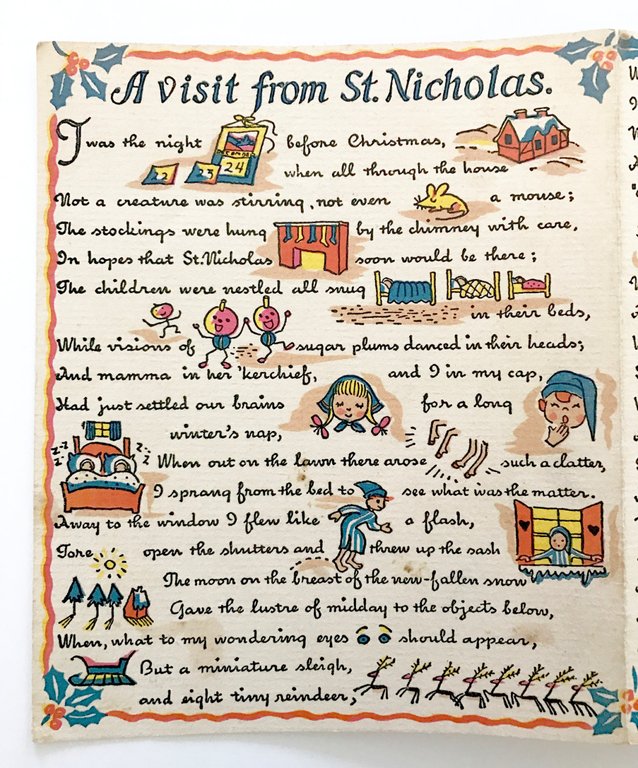 A visit from St. Nicholas.
Twas the night before Christmas,
22 23 24
when all through the house
Not a creature was stirring, not even a mouse;
The stockings were hung by the chimney with care,
In hopes that St. Nicholas soon would be there;
The children were nestled all snug
in their beds,
While visions of sugar plums danced in their heads;
And mamma in her 'kerchief, and I in my cap,
Had just settled our brains for a long
winter's nap,
z z z z z z
When out on the lawn there arose such a clatter,
I sprang from the bed to see what was the matter.
Away to the window I flew like a flash,
Tore open the shutters and threw up the sash
The moon on the breast of the new-fallen snow
Gave the lustre of midday to the objects below,
When, what to my wondering eyes should appear,
But a miniature sleigh,
and eight tiny reindeer,